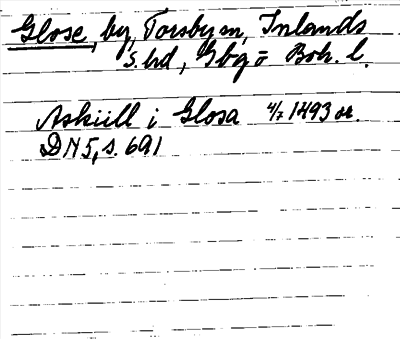 Glose, by, Torsby sn, Inlands
S. hd, Gbg o Boh. l.
Askiill i Glosa 4/7 1493 or.
DN 5, s. 691